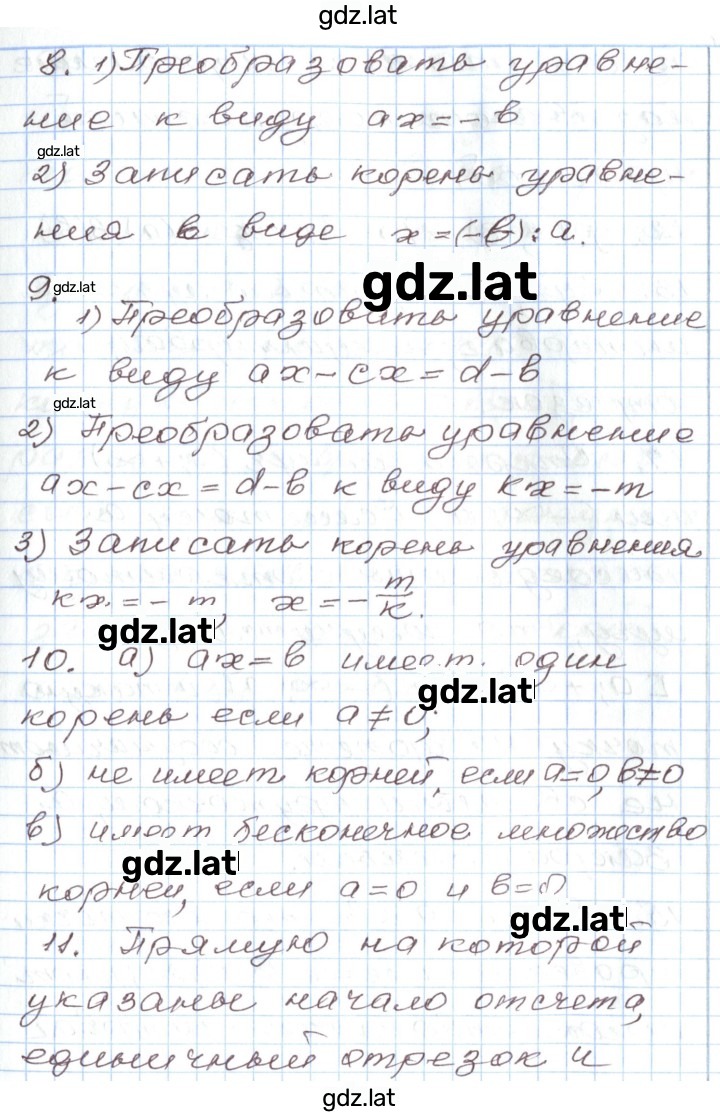 gdz.lat
8. 1) Преобразовать уравне-
ние к виду ax = - b
gdz.lat
2) Записать корень уравне-
ния в виде x = (-b) : a.
gdz.lat
9. gdz.lat
1) Преобразовать уравнение
к виду ax - cx = d - b
gdz.lat
2) Преобразовать уравнение
ax - cx = d - b к виду kx = -m
3) Записать корень уравнения
kx = - m, x = - m/k.
gdz.lat
10. а) ax = b имеет один
gdz.lat
корень если a ≠ 0;
б) не имеет корней, если a = 0, b ≠ 0
в) имеет бесконечное множество
gdz.lat
корней, если a = 0 и b = 0
gdz.lat
11. Прямую на которой
указаны начало отсчета,
единичный отрезок и
gdz.lat